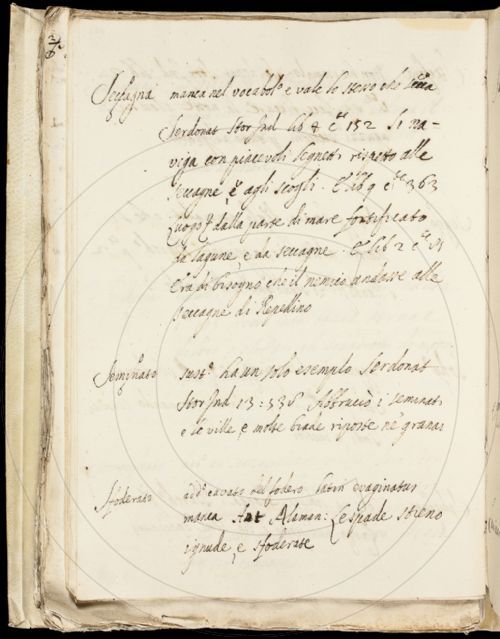 Seccagna manca nel vocabol.o e vale lo stesso che secca
Serdonat Stor Ind lib 4 c.te 152 Si na-
viga con piacevoli segneti rispetto alle
seccagne, e agli scogli. E lib 9 c.te 363
Luogo dalla parte di mare fortificato
da lagune, e da seccagne. E lib 2 c.te
Era di bisogno che il nemico andasse alle
seccagne di Repellino
Seminato sust.o ha un solo esempio Serdonat
Stor Ind 13: 536 Abbruciò i seminati
e le ville, e molte biade riposte ne' granai
Sfoderato add.o cavato del fodero latin evaginatus
manca Ant Alaman: Le spade stieno
ignude, e sfoderate